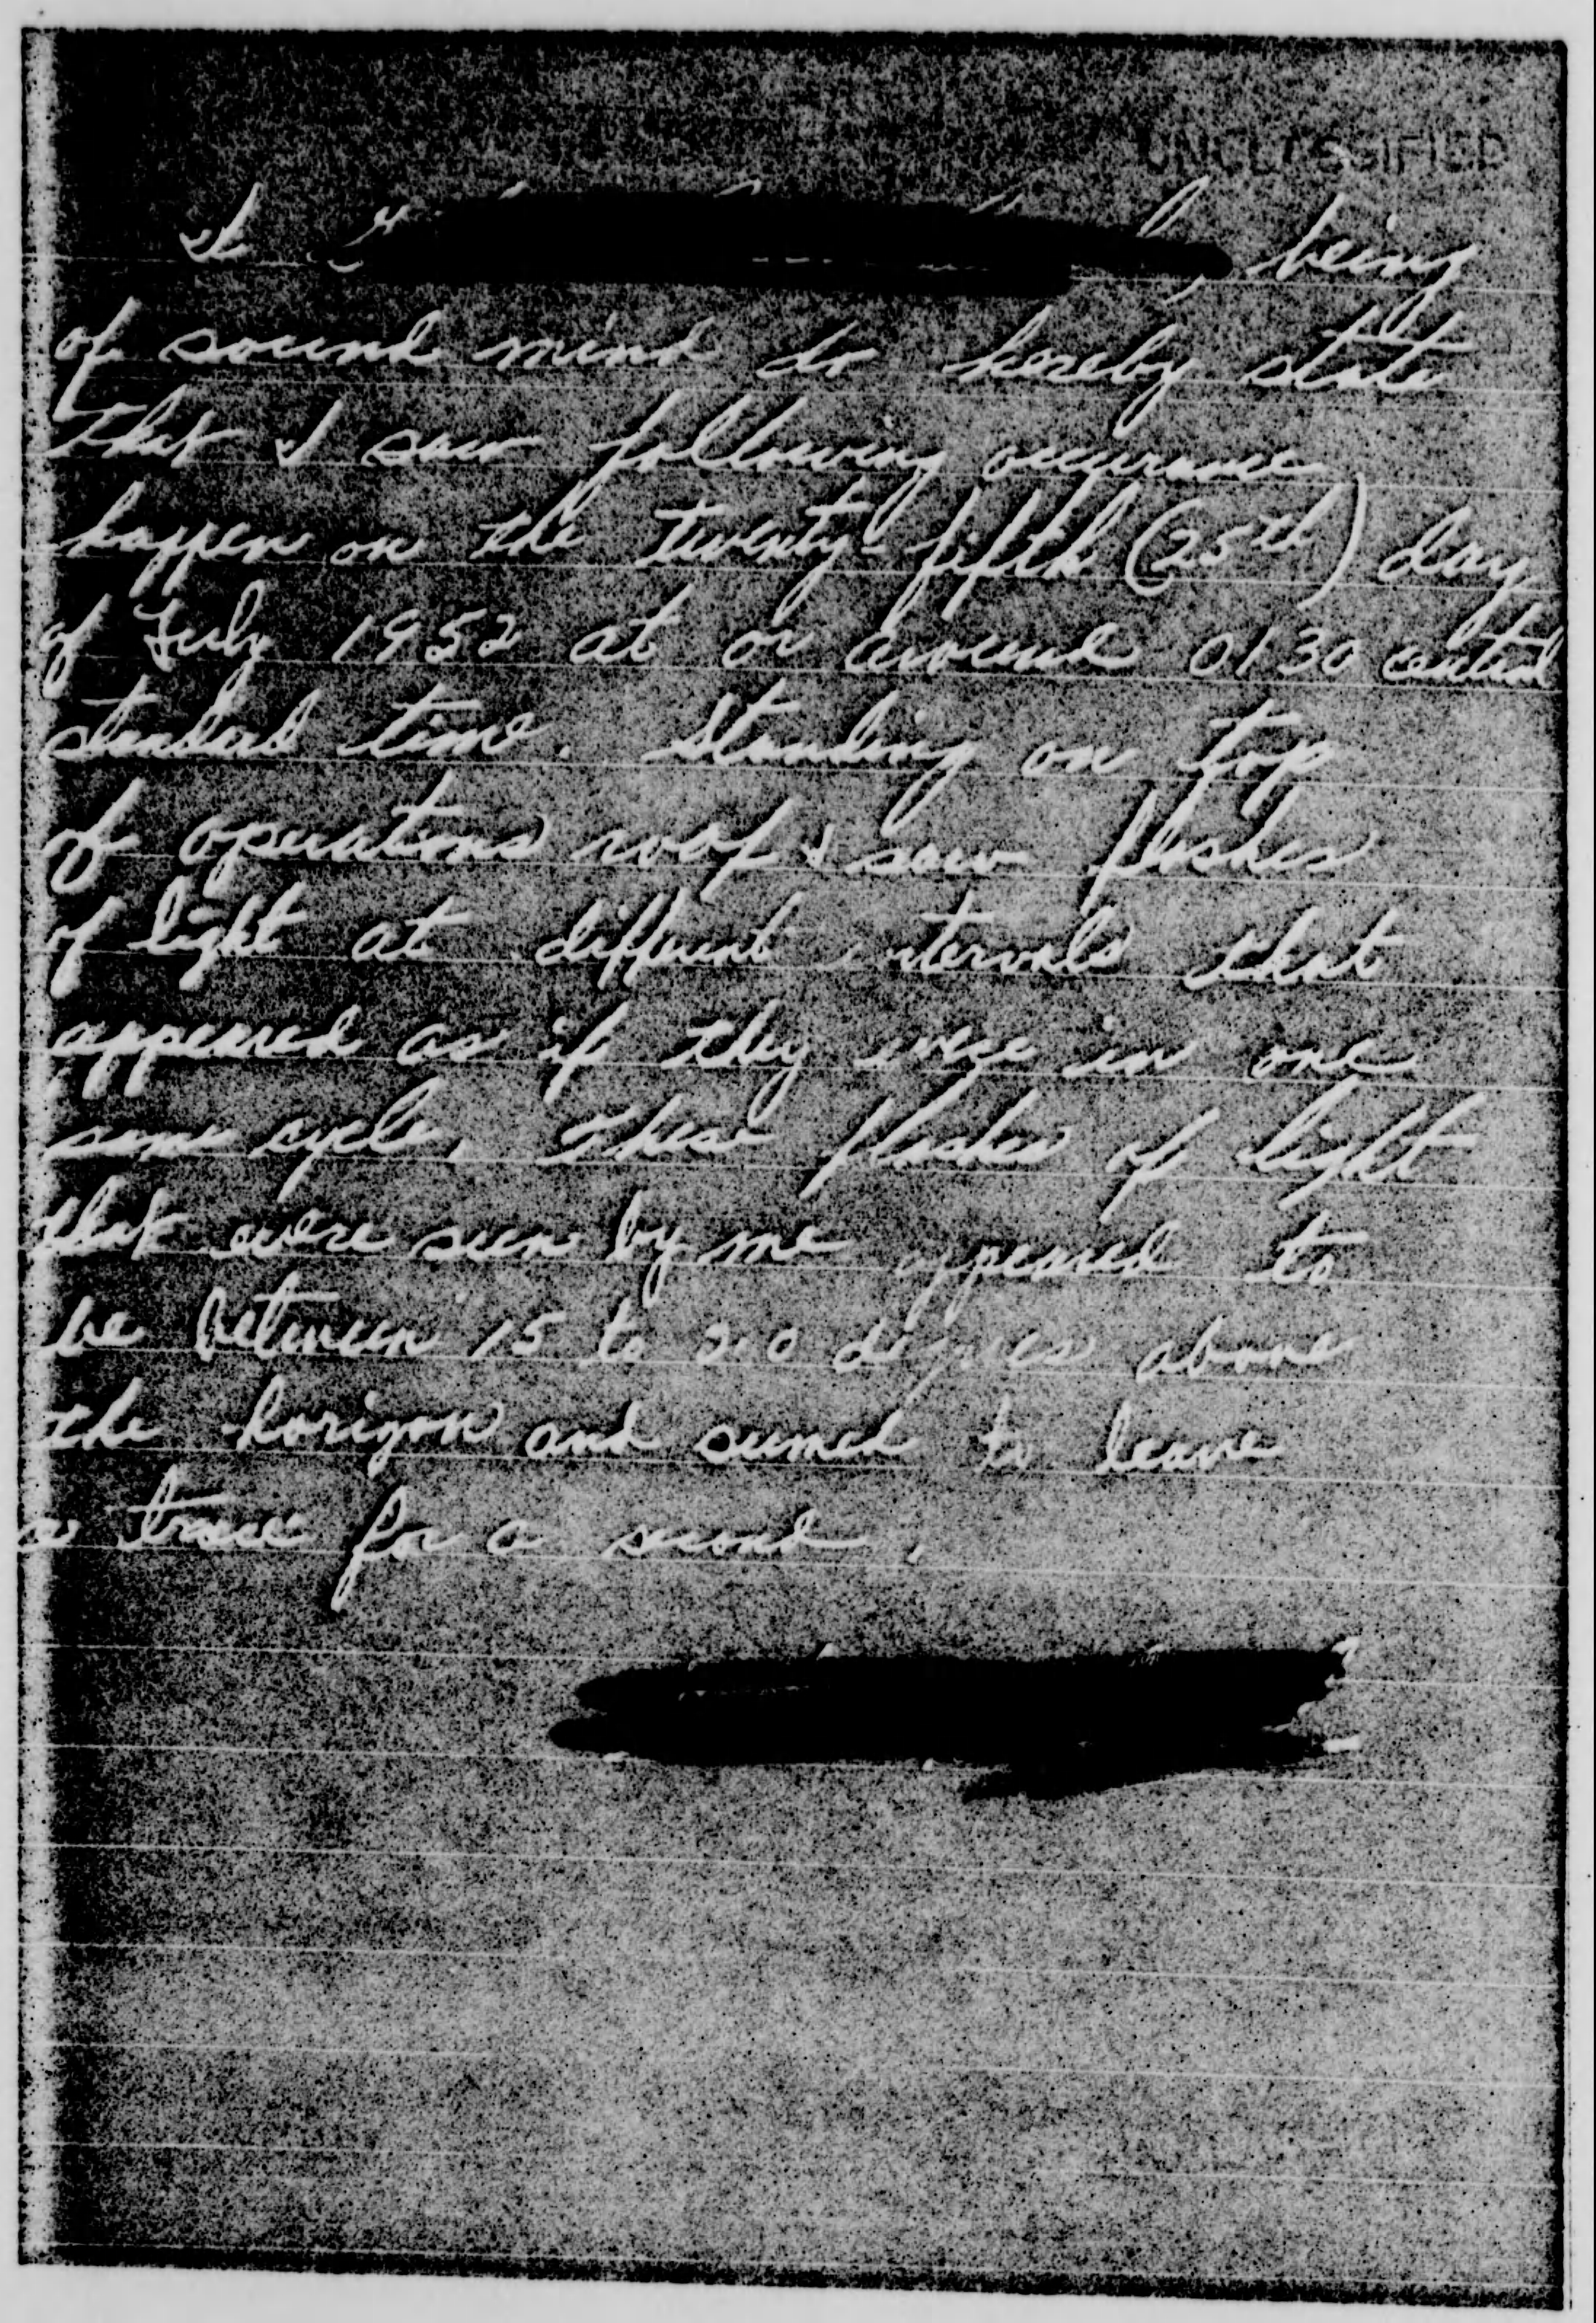 UNCLASSIFIED
I being
of sound mind do hereby state
that I saw following occurance
happen on the twenty-fifth (25th) day
of July 1952 at or around 0130 central
standard time. Standing on top
of operations roof I saw flashes
of light at different intervals that
appeared as if they were in one
same cycle. These flashes of light
that were seen by me appeared to
be between 15 to 20 degrees above
the horizon and seemed to leave
a trace for a second.